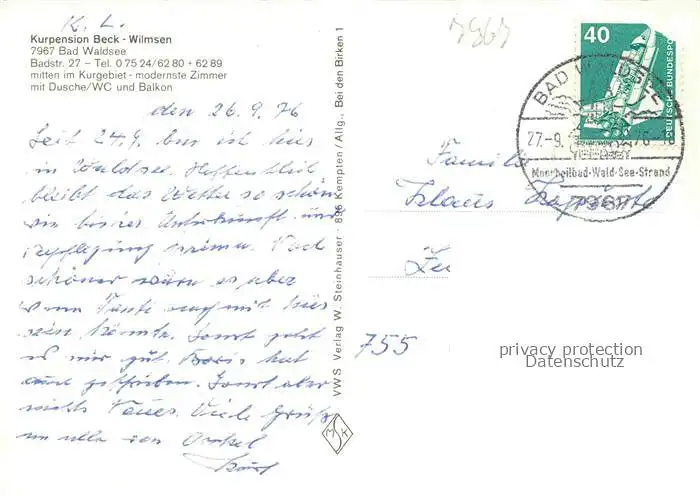 K. L.
Kurpension Beck - Wilmsen
7967 Bad Waldsee
Badstr. 27 – Tel. 0 75 24/62 80 + 62 89
mitten im Kurgebiet - modernste Zimmer
mit Dusche/WC und Balkon
den 26.9.76
Seit 24.9. bin ich hier
in Waldsee. Hoffentlich
bleibt das Wetter so schön
wie bisher Unterkunft und
Verpflegung prima. Noch
schöner wäre es aber
wenn Tante auch mit hier
sein könnte. Sonst geht
es mir gut. Boris hat
geschrieben. Sonst aber
nichts Neues. Viele Grüße
an alle von Onkel
VWS Verlag W. Steinhauser · 896 Kempten/Allg., Bei den Birken 1
M S K
40
DEUTSCHE BUNDESPOST
BAD WALDSEE
27.-9. 76-18
Moorheilbad-Wald-See-Strand
7967
Familie
Klaus
755
privacy protection
Datenschutz